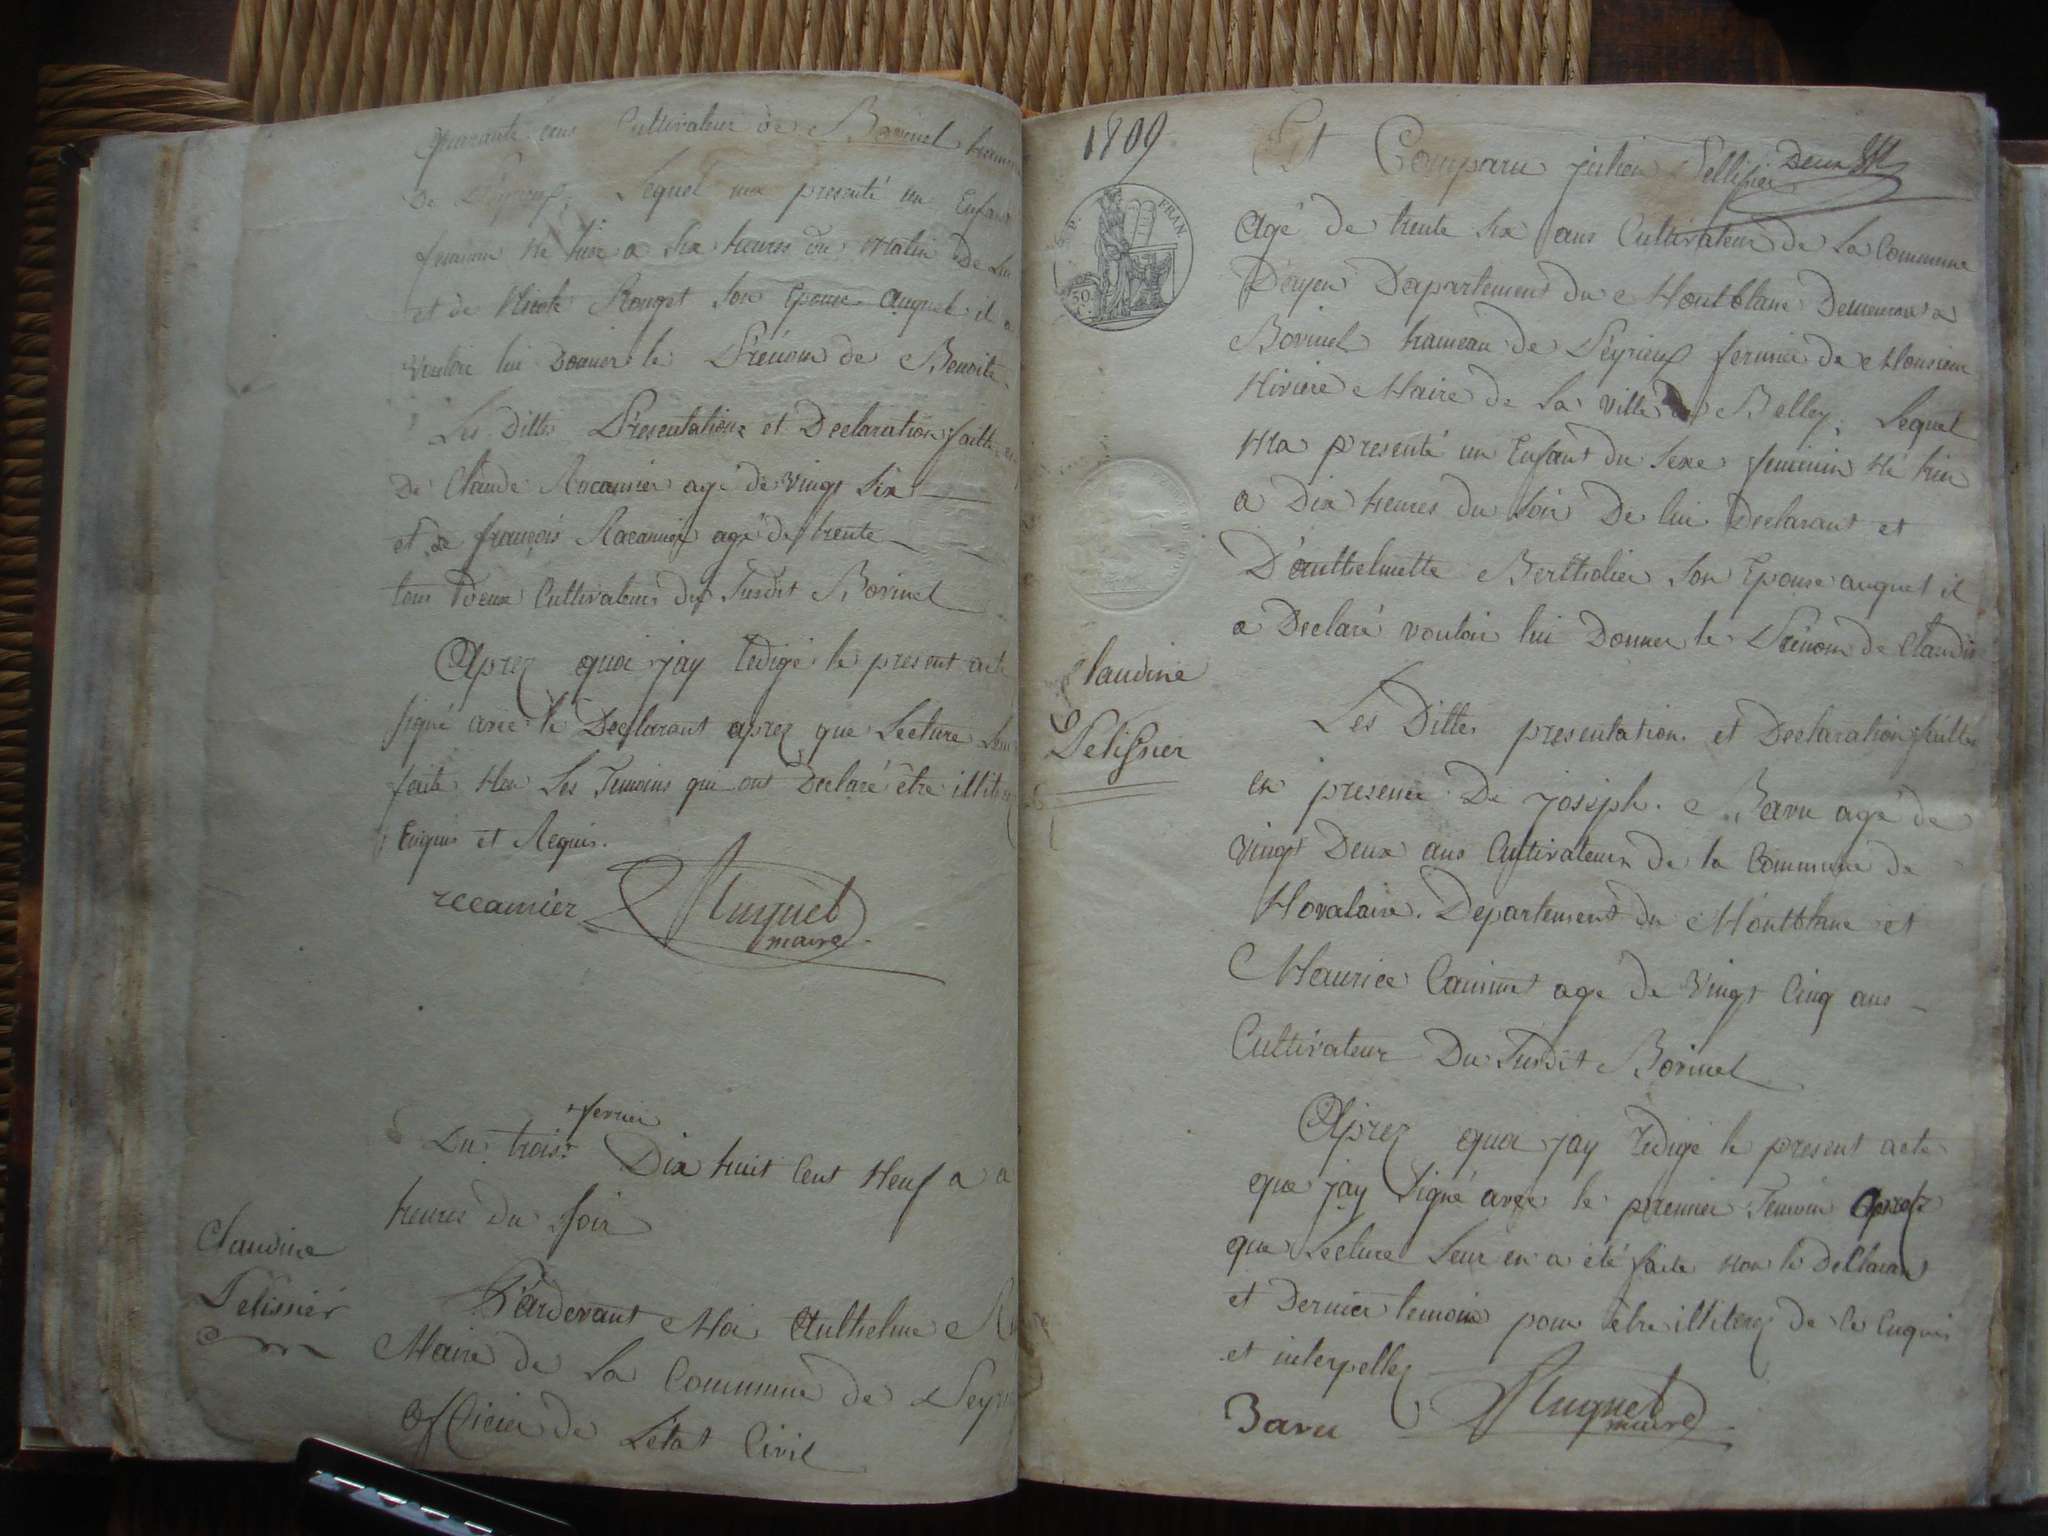 quarante ans Cultivateur de Borinel
De Peyrieux, Lequel ma presenté un Enfant
feminin Né hier a Six heures du Matin De Lui
et de Nicole Rouget Son Epouse auquel il a
vouloir lui Donner le Prénom de Benoite
Les Dittes Présentations et Declaration faitte
De Claude Racamier agé de vingt Six
et de françois Racamier agé de trente
tous deux Cultivateurs du Susdit Borinel
Aprez quoi jay redigé le present acte
signé avec le Declarant aprez que Lecture
faite Non Les Temoins qui ont Declaré être
Enquis et Requis.
recamier Huguet
maire
fevrier
Du trois Dix huit Cent Neuf a
heures du Soir
Claudine
Pelissier
Pardevant Moi Anthelme
Maire de La Commune de
officier de L'état Civil
1809
Deux
Est Comparu julien Pellissier
Agé de trente six ans Cultivateur de La Commune
D'ayen Departement du Montblanc Demeurant a
Borinel hameau de Peyrieux fermier de Monsieur
Maire de La Ville de Belley, Lequel
Ma presenté un Enfant du Sexe feminin Né hier
a Dix heures du Soir De lui Declarant et
D'anthelmette Bertholier Son Epouse auquel il
a Declaré vouloir lui Donner le Prénom de Claudine
P. FRAN
50
Claudine
Pelissier
Les Dittes presentation et Declaration faittes
en presence De joseph Bavu agé de
vingt Deux ans Cultivateur de la Commune de
Novalaise Departement du Montblanc et
Maurice agé de vingt Cinq ans
Cultivateur Du Susdit Borinel
Aprez quoi jay redigé le present acte
que jay Signé avec le premier Temoin Aprez
que Lecture Leur en a été faite Non le Declarant
et Dernier temoin pour être illiterez de Ce Enquis
et interpellez
Bavu Huguet
maire